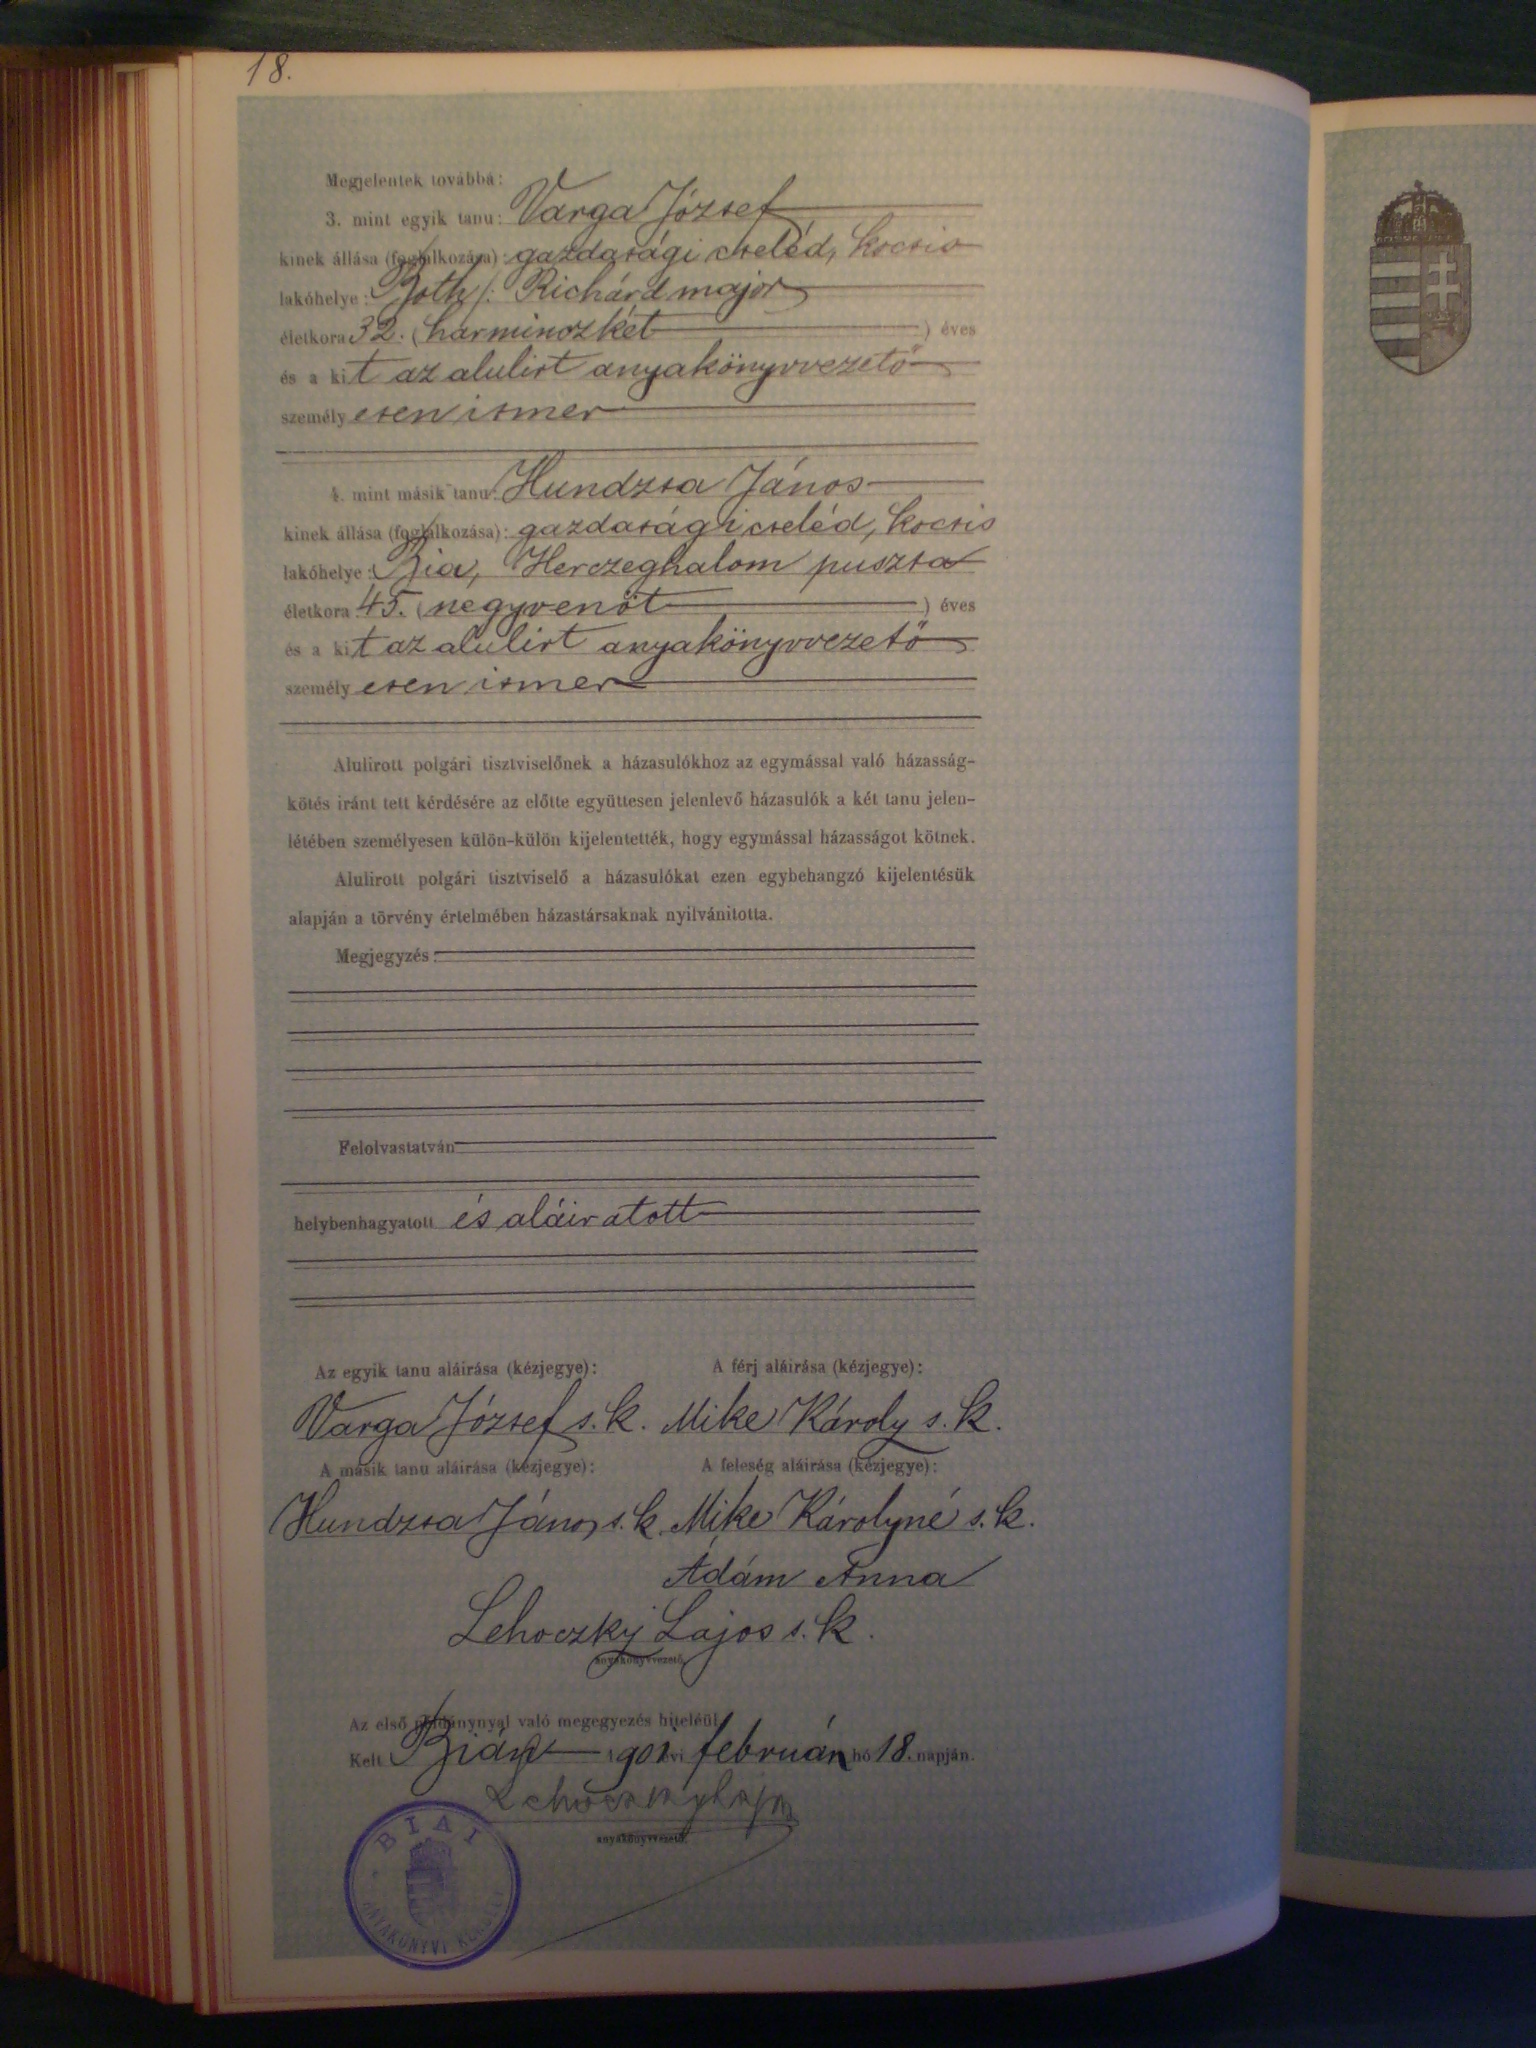 18.
Megjelentek továbbá:
3. mint egyik tanu: Varga József
kinek állása (foglalkozása): gazdasági cseléd, kocsis
lakóhelye: Both/: Richárd major
életkora 32. (harminczkét) éves
és a kit az alulirt anyakönyvvezető
személyesen ismer
4. mint másik tanu: Hundzsa János
kinek állása (foglalkozása): gazdasági cseléd, kocsis
lakóhelye: Bia, Herczeghalom puszta
életkora 45. (negyvenöt) éves
és a kit az alulirt anyakönyvvezető
személyesen ismer
Alulirott polgári tisztviselőnek a házasulókhoz az egymással való házasság-
kötés iránt tett kérdésére az előtte együttesen jelenlevő házasulók a két tanu jelen-
létében személyesen külön-külön kijelentették, hogy egymással házasságot kötnek.
Alulirott polgári tisztviselő a házasulókat ezen egybehangzó kijelentésük
alapján a törvény értelmében házastársaknak nyilvánitotta.
Megjegyzés:
Felolvastatván
helybenhagyatott és aláiratott
Az egyik tanu aláirása (kézjegye): A férj aláirása (kézjegye):
Varga József s. k. Mike Károly s. k.
A másik tanu aláirása (kézjegye): A feleség aláirása (kézjegye):
Hundzsa János s. k. Mike Károlyné s. k.
Ádám Anna
Lehoczky Lajos s. k.
anyakönyvvezető.
Az első példánynyal való megegyezés hiteléül
Kelt Bián 1901 évi február hó 18. napján.
Lehoczky Lajos
anyakönyvvezető.
BIAI
ANYAKÖNYVI KERÜLET